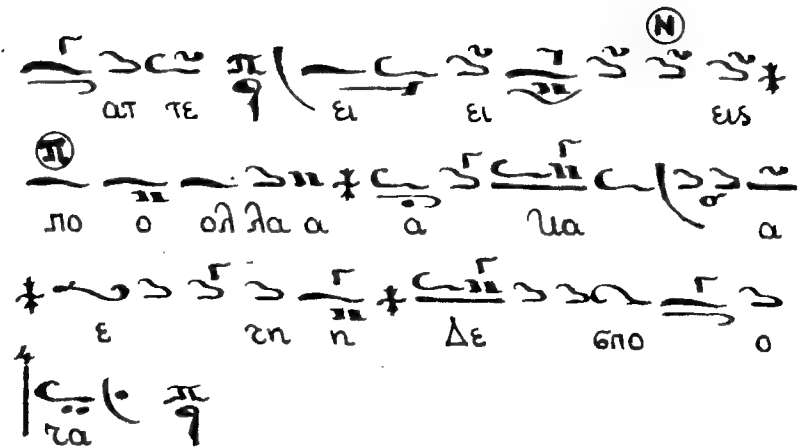 Ν
ατ τε π ει ει εις
Π
πο ο ολ λα α α α
ε τη η Δε σπο ο
τα π